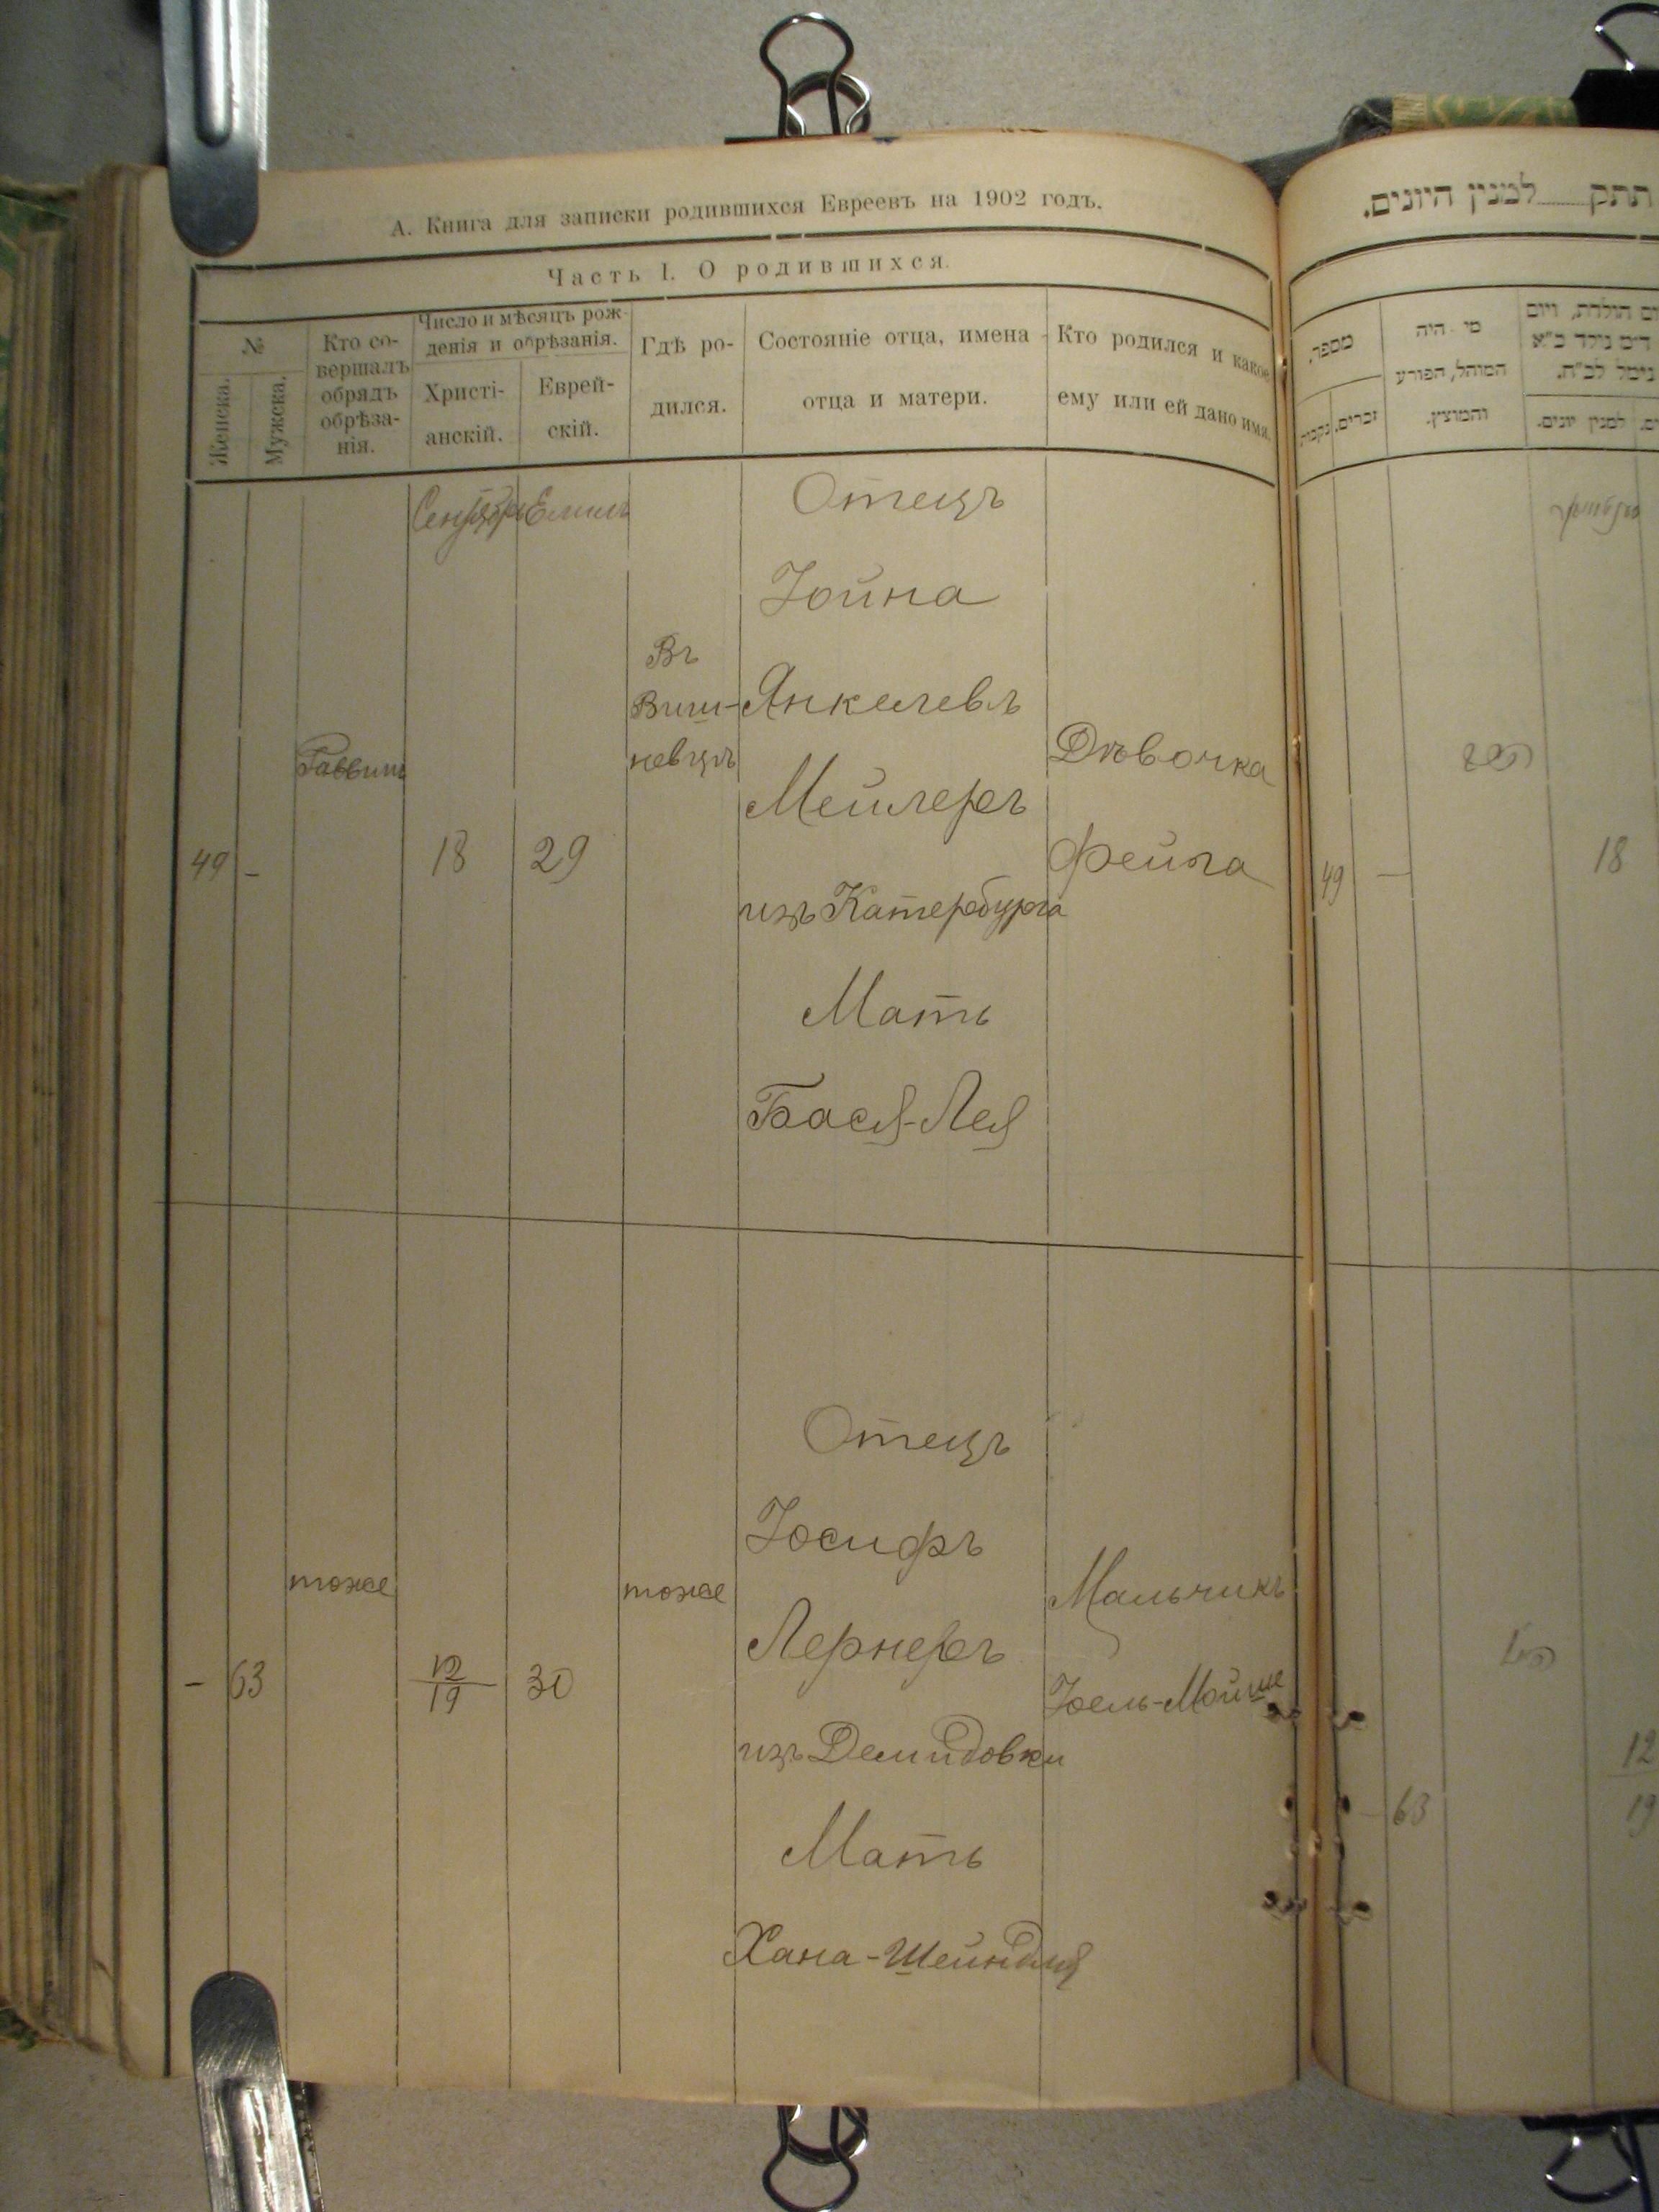 А. Книга для записки родившихся Евреевъ на 1902 годъ.
Часть I. О родившихся.
№
Женска.
Мужска.
Кто со-
вершалъ
обрядъ
обрѣза-
нія.
Число и мѣсяцъ рож-
денія и обрѣзанія.
Христі-
анскій.
Еврей-
скій.
Гдѣ ро-
дился.
Состояніе отца, имена
отца и матери.
Кто родился и какое
ему или ей дано имя.
Сентябрь
Елилъ
Отецъ
Іойна
Въ
Виш-
невцѣ
Янкелевъ
Раввинъ
Дѣвочка
Мейлеръ
49 -
18
29
Фейга
изъ Катербурга
Мать
Бася-Лея
Отецъ
Іосифъ
тоже
тоже
Мальчикъ
Лернеръ
- 63
12
19
30
Іоель-Мойше
изъ Демидовки
Мать
Хана-Шейндля
תתק למנין היונים.
מספר.
זכרים.
נקבות
מי היה
המוהל, הפורע
והמוצץ.
הולדת, ויום
למנין יונים.
49 —
18
63
12
19